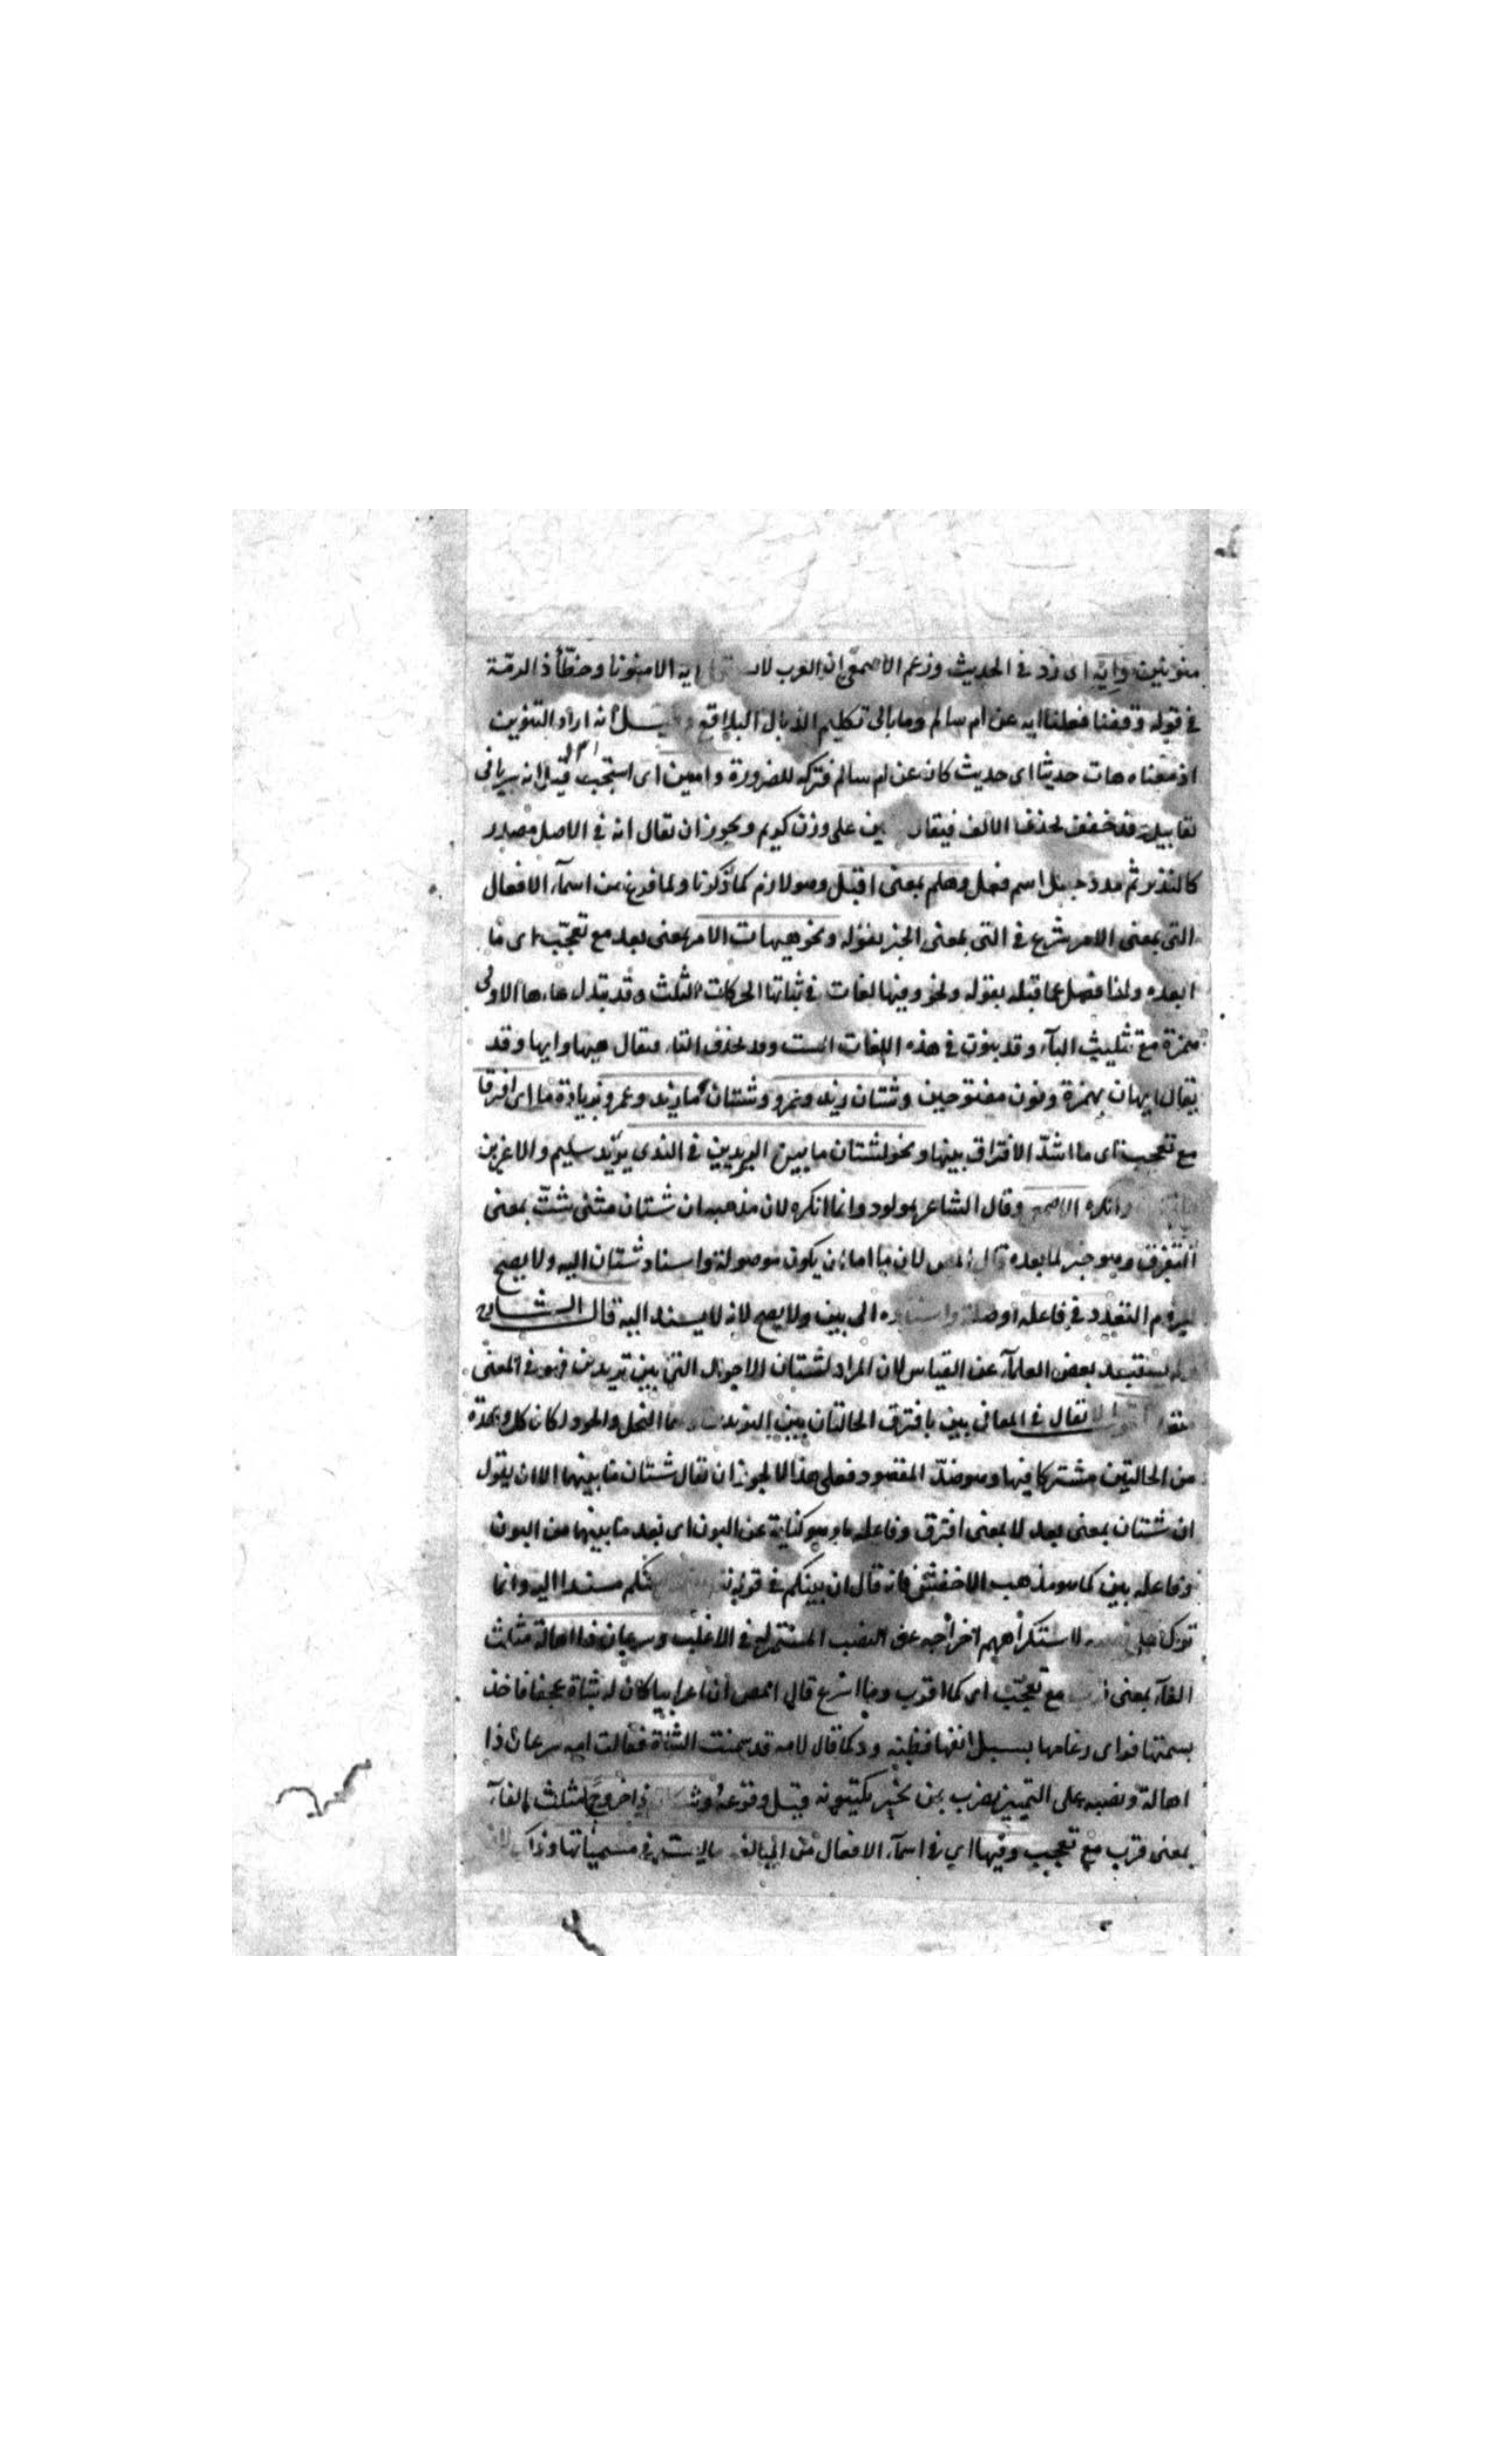 منونين وايه اى زد فى الحديث وزعم الاصمعى ان العرب لا ايه الا منونا وخطأ ذا الرمة
فى قوله وقفنا فقلنا ايه عن ام سالم وما بالى تكليم الديار البلاقع انه اراد التنوين
اذ معناه هات حديثا اى حديث كان عن ام سالم فتركه للضرورة وامين اى استجب قيل انه سريانى
وقد تخفف بحذف الالف فيقال على وزن كريم ويجوز ان يقال انه فى الاصل مصدر
كالنذير ثم مد وجعل اسم فعل وهلم بمعنى اقبل وهو لازم كما ذكرنا ولما فرغ من اسمآء الافعال
التى بمعنى الامر شرع فى التى بمعنى الخبر بقوله ونحو هيهات الامر بمعنى بعد مع تعجب اى ما
ابعده ولذا فصل عما قبله بقوله ونحو وفيها لغات فى تائها الحركات الثلث وقد تبدل هاءها الاولى
همزة مع تثليث التآء وقد ينون فى هذه اللغات الست وقد تحذف التاء فيقال هيها وايها وقد
يقال ايهان بهمزة ونون مفتوحين وشتان زيد وعمرو وشتان ما زيد وعمرو بزيادة ما اى افترقا
مع تعجب اى ما اشد الافتراق بينها ونحو لشتان ما بين اليزيدين فى الندى يزيد سليم والاغر بن
وانكره الاصمعى وقال الشاعر مولود وانما انكره لان مذهبه ان شتان مثنى شت بمعنى
المتفرق وهو خبر لما بعده قال المص لان ما اما ان يكون موصولة واسناد شتان اليه ولا يصح
للزوم التعدد فى فاعله او صلة واسناده الى بين ولا يصح لانه لا يسند اليه قال الشاعر
ولم يستبعد بعض العلمآء عن القياس لان المراد لشتان الاحوال التى بين يزيدين فهو فى المعنى
يقال فى المعانى بين بافتراق الحالتان بين اليزيدين البخل والجود لكان كل واحدة
من الحالتين مشتركا فيها وهو ضد المقصود فعلى هذا لا يجوز ان يقال شتان ما بينهما الا ان يقول
ان شتان بمعنى بعد لا بمعنى افترق وفاعله ما وهو كناية عن البون اى بعد ما بينهما من البون
وفاعله بين كما هو مذهب الاخفش فانه قال ان بينكم فى قوله بينكم مسندا اليه وانما
ترك على لاستكراههم اخراجه عن النصب المستمر له فى الاغلب وسرعان ذا اهالة مثلث
الفآء بمعنى مع تعجب اى كما اقرب وما اسرع قال المص ان اعرابيا كان له شاة عجفا فاخذ
رغامها يسيل انفها فظنه ودكا قال لامه قد سمنت الشاة فقالت امه سرعان ذا
اهالة ونصبه على التمييز يضرب لمن يخبر بكينونه قبل وقوعه ذا خروجا مثلث الفآء
بمعنى قرب مع تعجب وفيها اى فى اسمآء الافعال من المبالغة ما ليست فى مسمياتها وذا